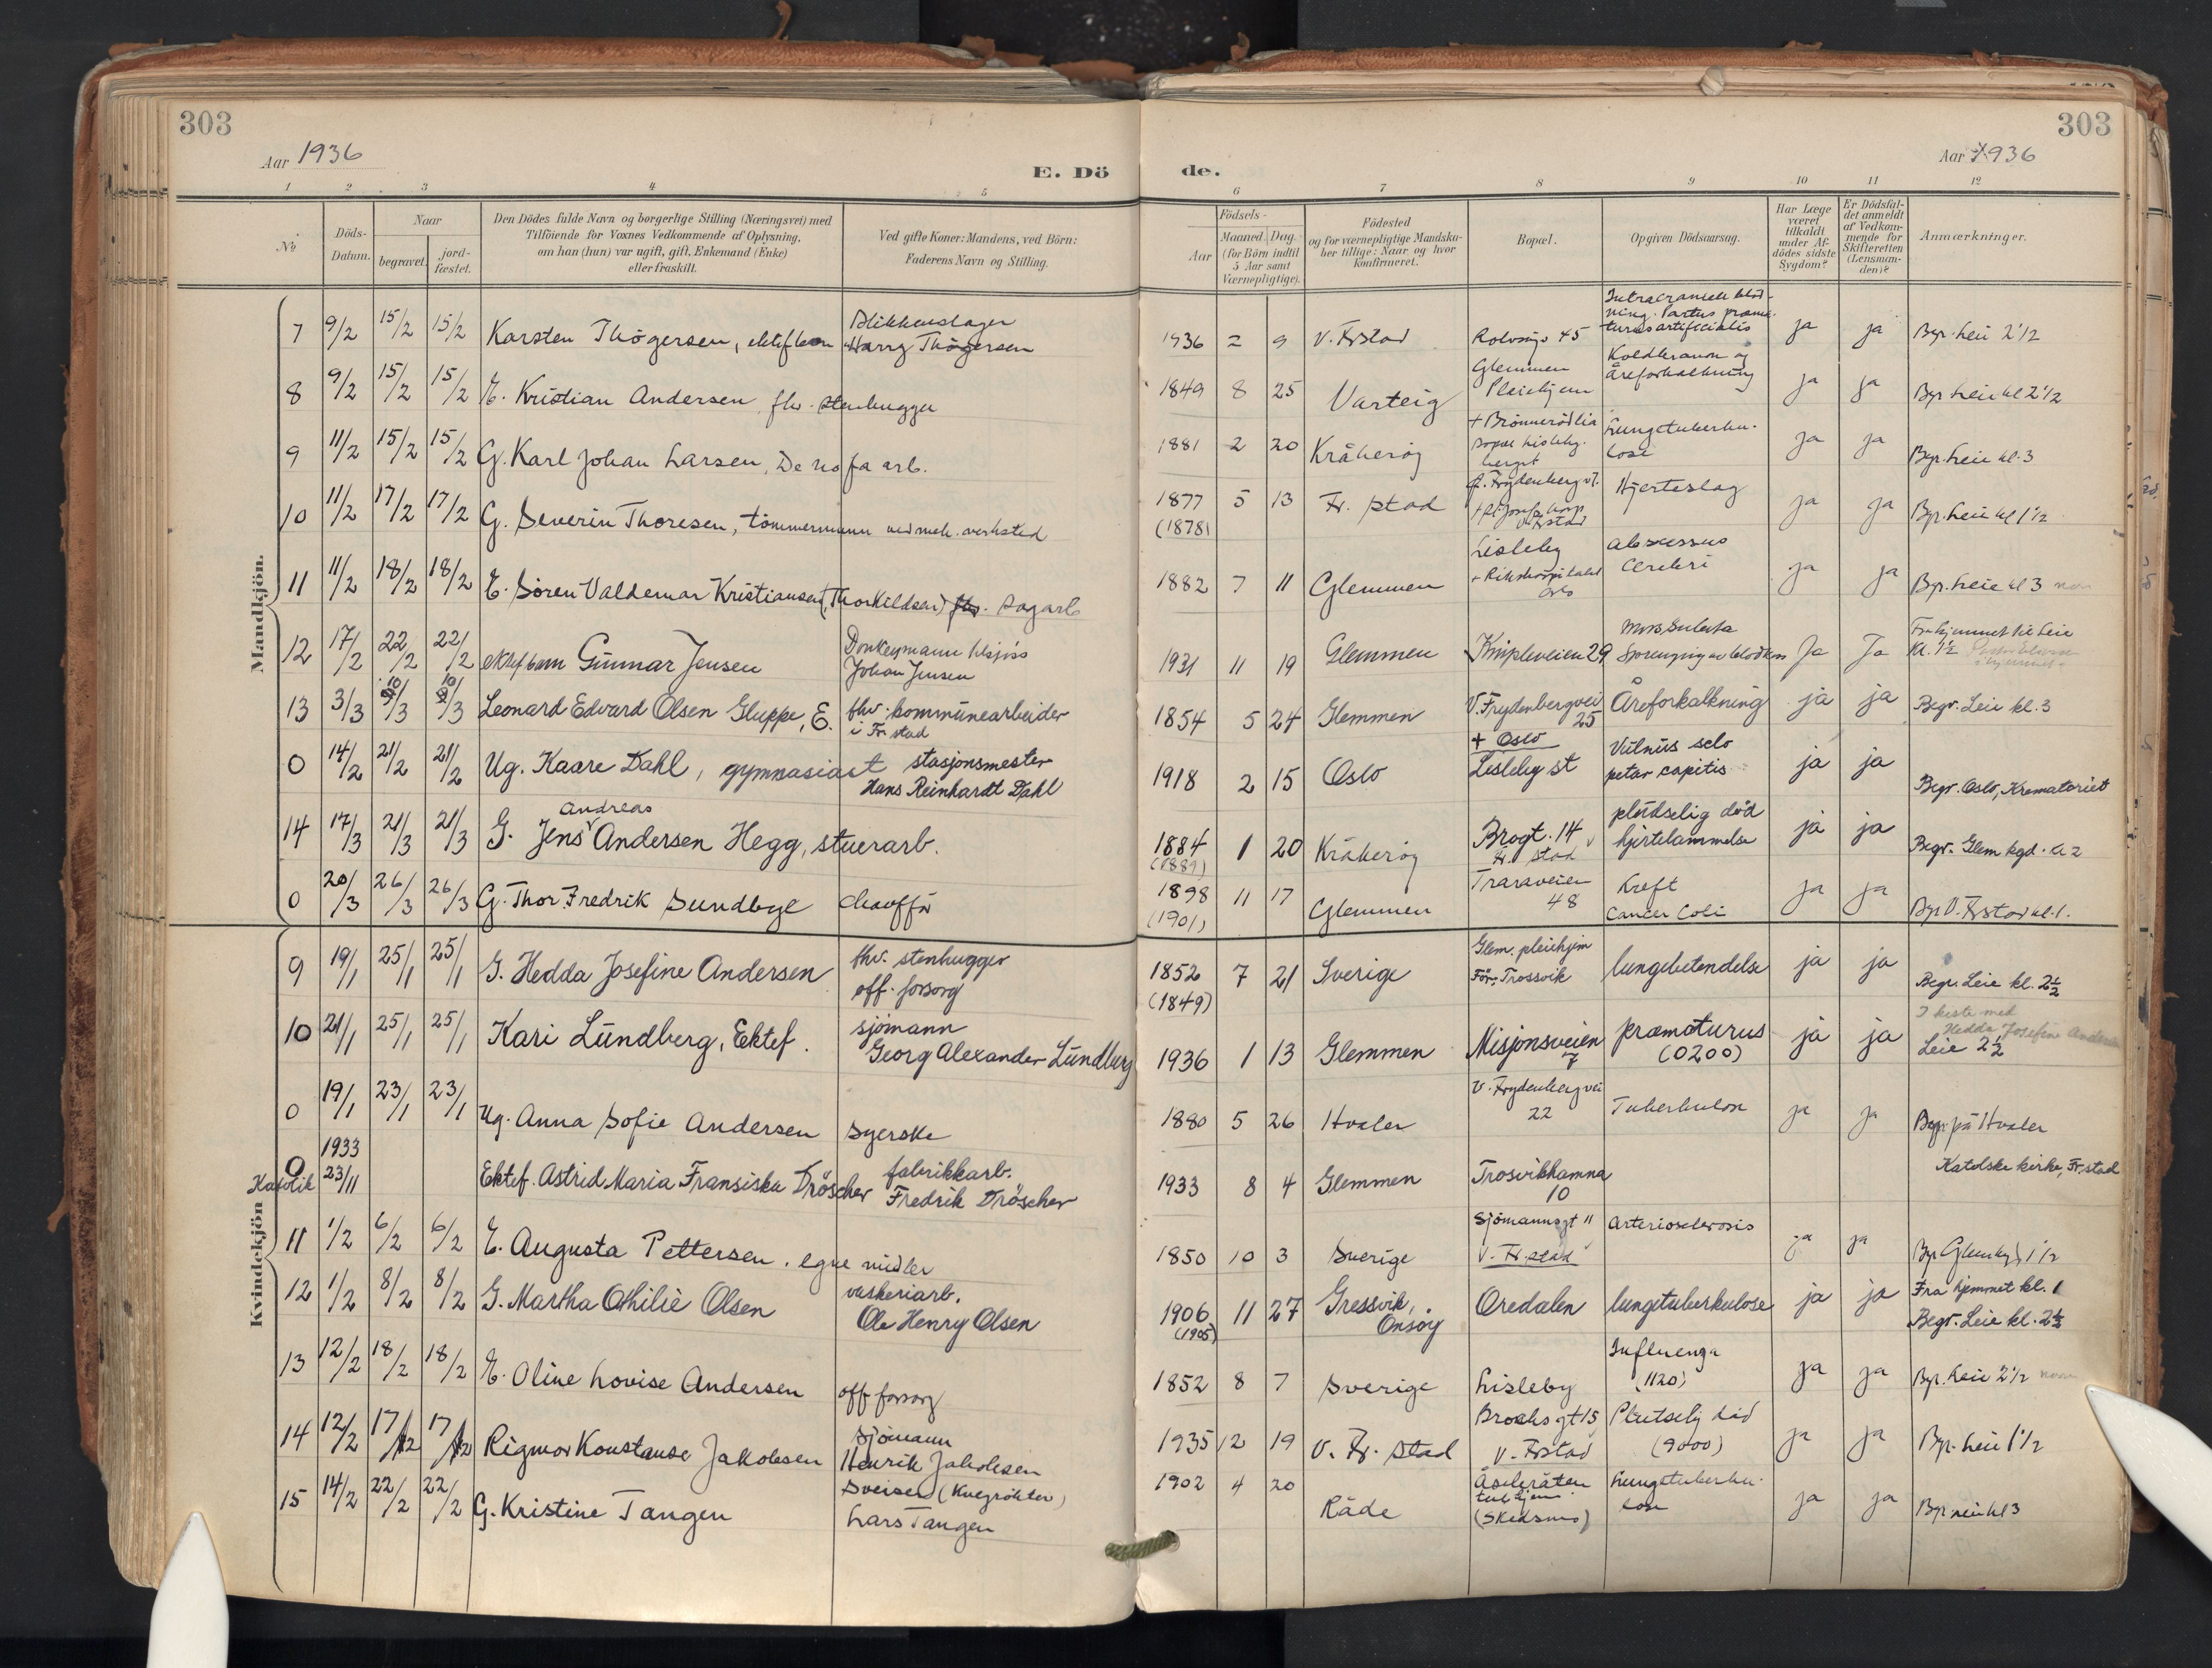 303
303
Aar 1936
E. Dö
de.
Aar 1936
1 2 3 4 5 6 7 8 9 10 11 12
No
Döds-
Datum.
Naar
begravet.
jord-
fæstet.
Den Dödes fulde Navn og borgerlige Stilling (Næringsvei) med
Tilföiende for Voxnes Vedkommende af Oplysning,
om han (hun) var ugift, gift, Enkemand (Enke)
eller fraskilt.
Ved gifte Koner: Mandens, ved Börn:
Faderens Navn og Stilling.
Födsels-
Aar
Maaned. Dag.
(for Börn indtil
5 Aar samt
Værnepligtige).
Födested
og for værnepligtige Mandska-
ber tillige: Naar og hvor
konfirmeret.
Bopæl.
Opgiven Dödsaarsag.
Har Læge
været
tilkaldt
under Af-
dödes sidste
Sygdom?
Er Dödsfal-
det anmeldt
af Vedkom-
mende for
Skifteretten
(Lensman-
den)?
Anmærkninger.
Mandkjön.
7 9/2 15/2 15/2 Karsten Thögersen, ektefbarn
Blikkenslager
Harry Thögersen
1936 2 9 V. Frstad
Rolvsöyv 45
Intracraniell blöd-
ning. Partus præma-
turus artificialis
ja ja
Bgr. Leie 2 1/2
8 9/2 15/2 15/2 E. Kristian Andersen fhv. stenhugger
1849 8 25 Varteig
Glemmen
Pleiehjem
Koldbrann og
åreforkalkning
ja ja
Bgr. Leie kl 2 1/2
9 11/2 15/2 15/2 G. Karl Johan Larsen, De-no-fa arb.
1881 2 20 Kråkeröy
+ Brönnerödlia
bopæl Lisleby-
berget
Lungetuberku-
lose
ja ja
Bgr. Leie kl. 3
10 11/2 17/2 17/2 G. Severin Thoresen, tömmermann ved mek. verksted
1877 5 13 Fr. stad
(1878)
Hjerteslag
ja ja
Bgr. Leie kl 1 1/2
11 11/2 18/2 18/2 E. Sören Valdemar Kristiansen (Thorkildsen) fhv. sagarb
1882 7 11 Glemmen
Lisleby
+ Rikshospitalet
Oslo
abscessus
cerebri
ja ja
Bgr. Leie kl 3
12 17/2 22/2 22/2 ektef barn Gunnar Jensen
Donkeymann tilsjös
Johan Jensen
1931 11 19 Glemmen
Knipleveien 29
Mors subita
Sprengning av blodkar
Ja Ja
Fra hjemmet til Leie
kl. 1 1/2
13 3/3 10/3 10/3 Leonard Edvard Olsen Gluppe, E.
fhv. kommunearbeider
i Fr. stad
1854 5 24 Glemmen
V. Frydenbergvei
25
Åreforkalkning
ja ja
Begr. Leie kl. 3
0 14/2 21/2 21/2 Ug. Kaare Dahl, gymnasiast
stasjonsmester
Hans Reinhardt Dahl
1918 2 15 Oslo
+ Oslo
Lisleby st
Vulnus sclo
petar capitis
ja ja
Begr. Oslo, Krematoriet
14 17/3 21/3 21/3 G. Jens Andreas Andersen Hegg, stuerarb.
1884 1 20 Kråkeröy
(1889)
Brogt. 14
Fr. stad
plutselig död
hjertelammelse
ja ja
Begr. Glem kgd. kl 2
0 20/3 26/3 26/3 G. Thor Fredrik Sundbye chaufför
1898 11 17 Glemmen
(1901)
Traraveien
48
Kreft
Cancer Coli
ja ja
Bgr V. Frstad kl. 1.
Kvindekjön
9 19/1 25/1 25/1 G. Hedda Josefine Andersen
fhv. stenhugger
off. forsorg
1852 7 21 Sverige
(1849)
Glem. pleiehjem
För: Trossvik
lungebetendelse
ja ja
Begr. Leie kl. 2 1/2
10 21/1 25/1 25/1 Kari Lundberg, Ektef.
sjömann
Georg Alexander Lundberg
1936 1 13 Glemmen
Misjonsveien
7
præmaturus
(0200)
ja ja
I kiste med
Hedda Josefine Andersen
Leie 2 1/2
0 19/1 23/1 23/1 Ug. Anna Sofie Andersen syerske
1880 5 26 Hvaler
V. Frydenberg vei
22
Tuberkulose
ja ja
Begr. på Hvaler
0 1933
Katolik 23/11 Ektef. Astrid Maria Fransiska Dröscher
fabrikkarb.
Fredrik Dröscher
1933 8 4 Glemmen
Trosvikhamna
10
Katolske kirke, Fr. stad
11 1/2 6/2 6/2 E. Augusta Pettersen. egne midler
1850 10 3 Sverige
Sjömannsgt 11
V. Fr. stad
arteriosclerosis
ja ja
Bgr Glemkgd 1 1/2
12 1/2 8/2 8/2 G. Martha Othilie Olsen
vaskeriarb.
Ole Henry Olsen
1906 11 27 Gressvik,
(1905) Onsöy
Oredalen
lungetuberkulose
ja ja
Fra hjemmet kl. 1
Begr. Leie kl. 2 1/2
13 12/2 18/2 18/2 E. Oline Lovise Andersen off forsorg
1852 8 7 Sverige
Lisleby
Influenza
(1120)
ja ja
Bgr. Leie 2 1/2
14 12/2 17/2 17/2 Rigmor Konstanse Jakobsen
Sjömann
Henrik Jakobsen
1935 12 19 V. Fr. stad
Brochsgt 15
V. Frstad
Plutselig död
(9000)
ja ja
Bgr. Leie 1 1/2
15 14/2 22/2 22/2 G. Kristine Tangen
Sveiser (Kvegrökter)
Lars Tangen
1902 4 20 Råde
Åseleråten
tub hjem
(Skedsmo)
Lungetuberku-
lose
ja ja
Bgr Leie kl 3